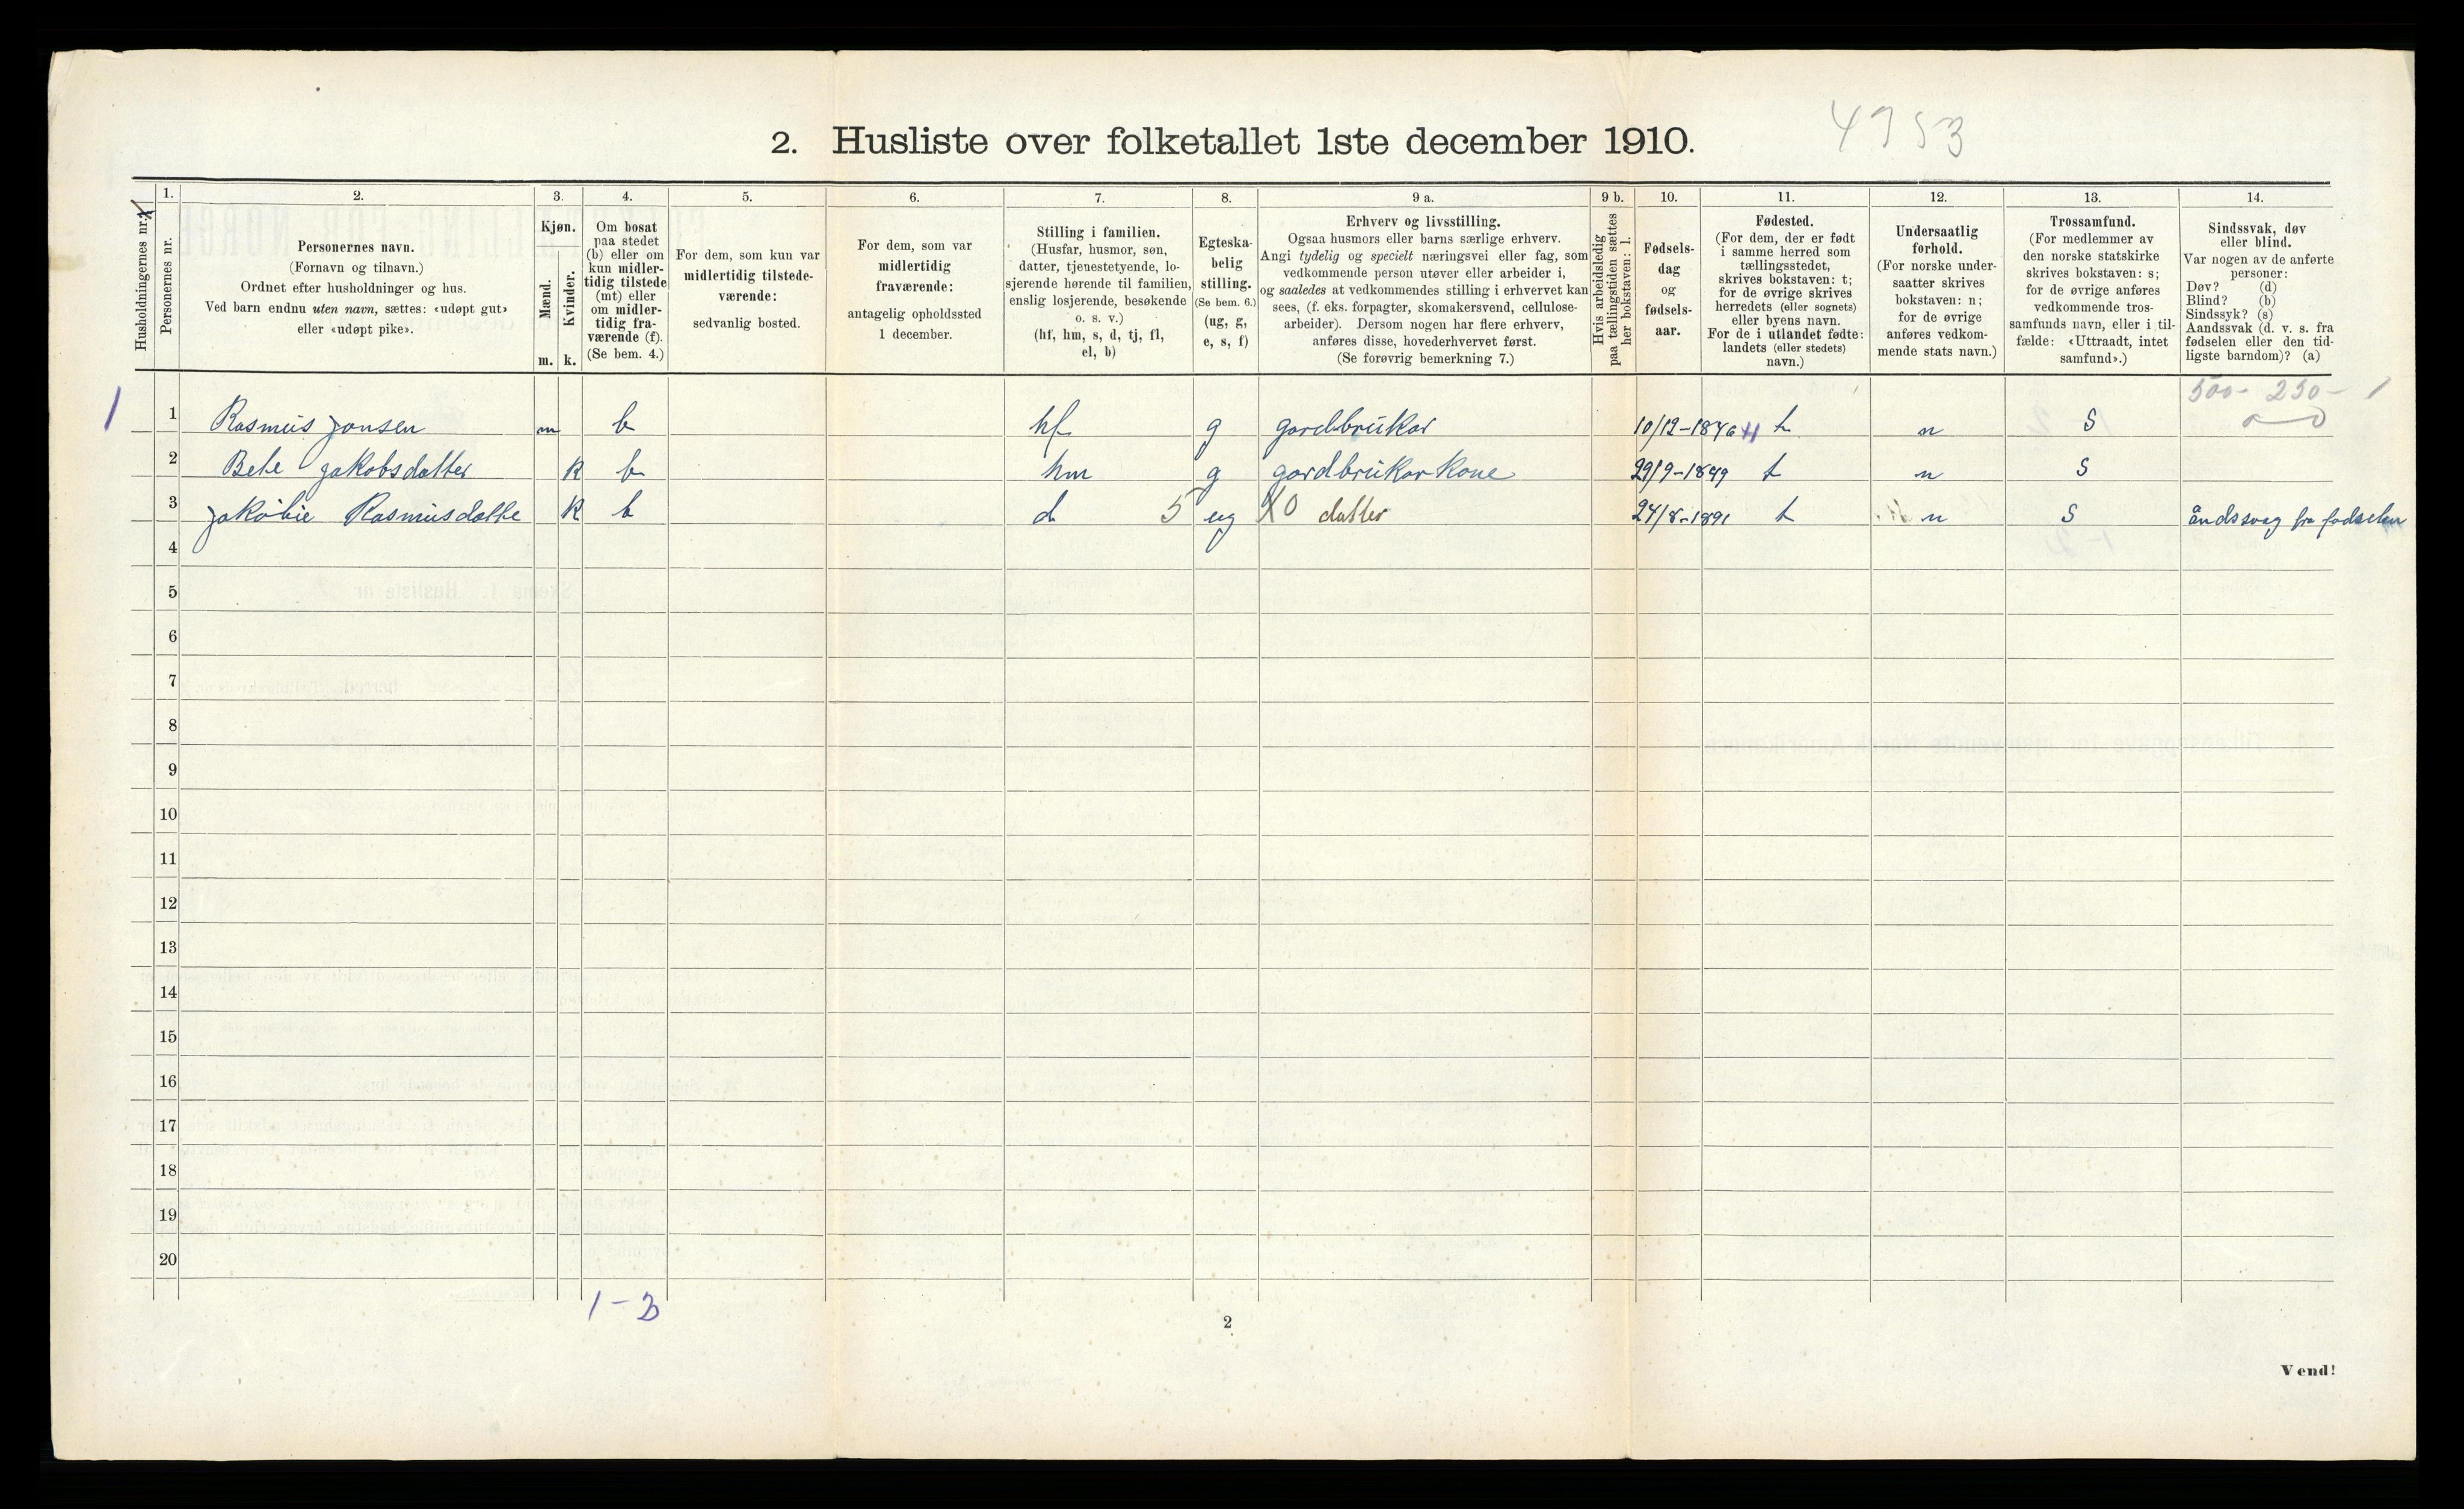 2. Husliste over folketallet 1ste december 1910.
Husholdningernes nr.
1.
Personernes nr.
2.
Personernes navn.
(Fornavn og tilnavn.)
Ordnet efter husholdninger og hus.
Ved barn endnu uten navn, sættes: «udøpt gut»
eller «udøpt pike».
3.
Kjøn.
Mænd.
Kvinder.
m. k.
4.
Om bosat
paa stedet
(b) eller om
kun midler-
tidig tilstede
(mt) eller
om midler-
tidig fra-
værende (f).
(Se bem. 4.)
5.
For dem, som kun var
midlertidig tilstede-
værende:
sedvanlig bosted.
6.
For dem, som var
midlertidig
fraværende:
antagelig opholdssted
1 december.
7.
Stilling i familien.
(Husfar, husmor, søn,
datter, tjenestetyende, lo-
sjerende hørende til familien,
enslig losjerende, besøkende
o. s. v.)
(hf, hm, s, d, tj, fl,
el, b)
8.
Egteska-
belig
stilling.
(Se bem. 6.)
(ug, g,
e, s, f)
9 a.
Erhverv og livsstilling.
Ogsaa husmors eller barns særlige erhverv.
Angi tydelig og specielt næringsvei eller fag, som
vedkommende person utøver eller arbeider i,
og saaledes at vedkommendes stilling i erhvervet kan
sees, (f. eks. forpagter, skomakersvend, cellulose-
arbeider). Dersom nogen har flere erhverv,
anføres disse, hovederhvervet først.
(Se forøvrig bemerkning 7.)
9 b.
Hvis arbeidsledig
paa tællingstiden sættes
her bokstaven: l.
10.
Fødsels-
dag
og
fødsels-
aar.
11.
Fødested.
(For dem, der er født
i samme herred som
tællingsstedet,
skrives bokstaven: t;
for de øvrige skrives
herredets (eller sognets)
eller byens navn.
For de i utlandet fødte:
landets (eller stedets)
navn.)
12.
Undersaatlig
forhold.
(For norske under-
saatter skrives
bokstaven: n;
for de øvrige
anføres vedkom-
mende stats navn.)
13.
Trossamfund.
(For medlemmer av
den norske statskirke
skrives bokstaven: s;
for de øvrige anføres
vedkommende tros-
samfunds navn, eller i til-
fælde: «Uttraadt, intet
samfund».)
14.
Sindssvak, døv
eller blind.
Var nogen av de anførte
personer:
Døv? (d)
Blind? (b)
Sindssyk? (s)
Aandssvak (d. v. s. fra
fødselen eller den tid-
ligste barndom)? (a)
500- 250- 1
1 1 Rasmus Jonsen m b hf g gardbrukar 10/12-1846 t n S
2 Bete Jakobsdatter k b hm g gardbrukarkone 29/9-1849 t n S
3 Jakobie Rasmusdatte k b d 5 ug X0 datter 24/8-1891 t n S åndssvag fra fødselen
4
5
6
7
8
9
10
11
12
13
14
15
16
17
18
19
20
1-2
2
Vend!